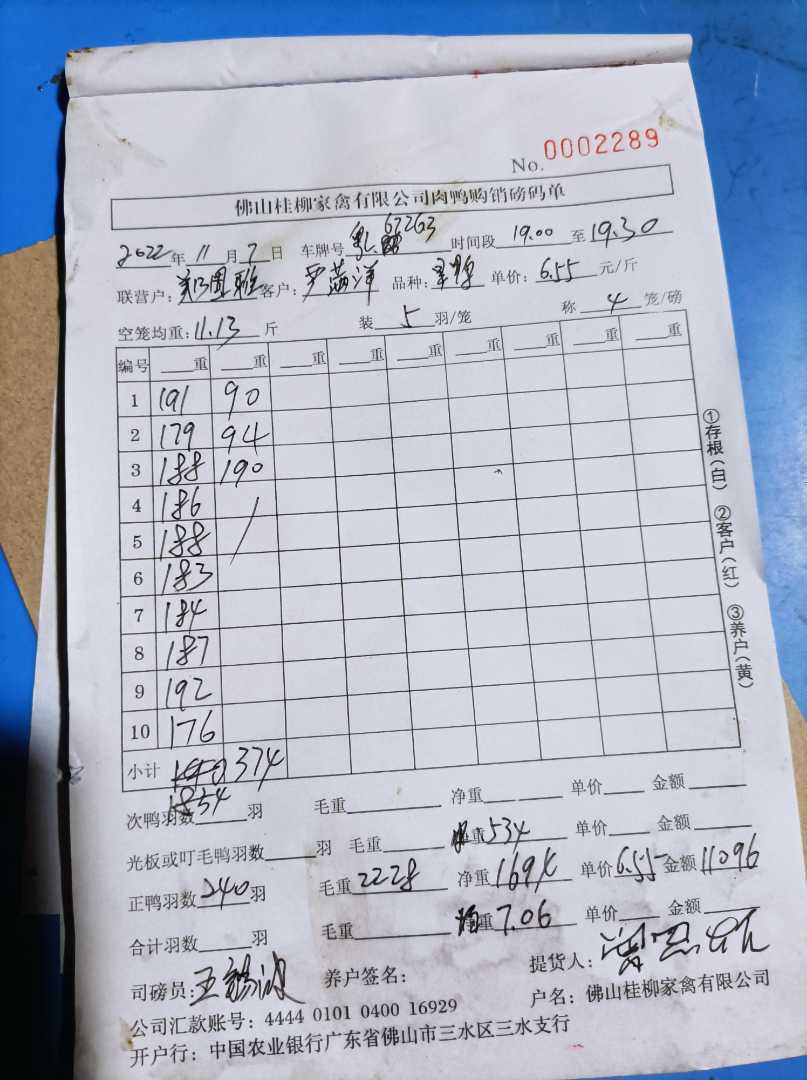 No. 0002289
佛山桂柳家禽有限公司肉鸭购销磅码单
2022年 11月 7日 车牌号 67263 时间段 19.00 至 19.30
联营户: 客户: 品种: 单价: 6.55 元/斤
空笼均重: 11.13 斤 装 5 羽/笼 称 4 笼/磅
编号 重 重 重 重 重 重 重 重
1 191 90
2 179 94
3 188 190
4 186
5 188
6 183
7 184
8 187
9 192
10 176
小计 374
1854
次鸭羽数 羽 毛重 净重 单价 金额
光板或叮毛鸭羽数 羽 毛重 重 534 单价 金额
正鸭羽数 240 羽 毛重 2228 净重 1694 单价 6.55 金额 11096
合计羽数 羽 毛重 均重 7.06 单价 金额
司磅员: 王锡波 养户签名: 提货人:
公司汇款账号: 4444 0101 0400 16929 户名: 佛山桂柳家禽有限公司
开户行: 中国农业银行广东省佛山市三水区三水支行
①存根(白) ②客户(红) ③养户(黄)